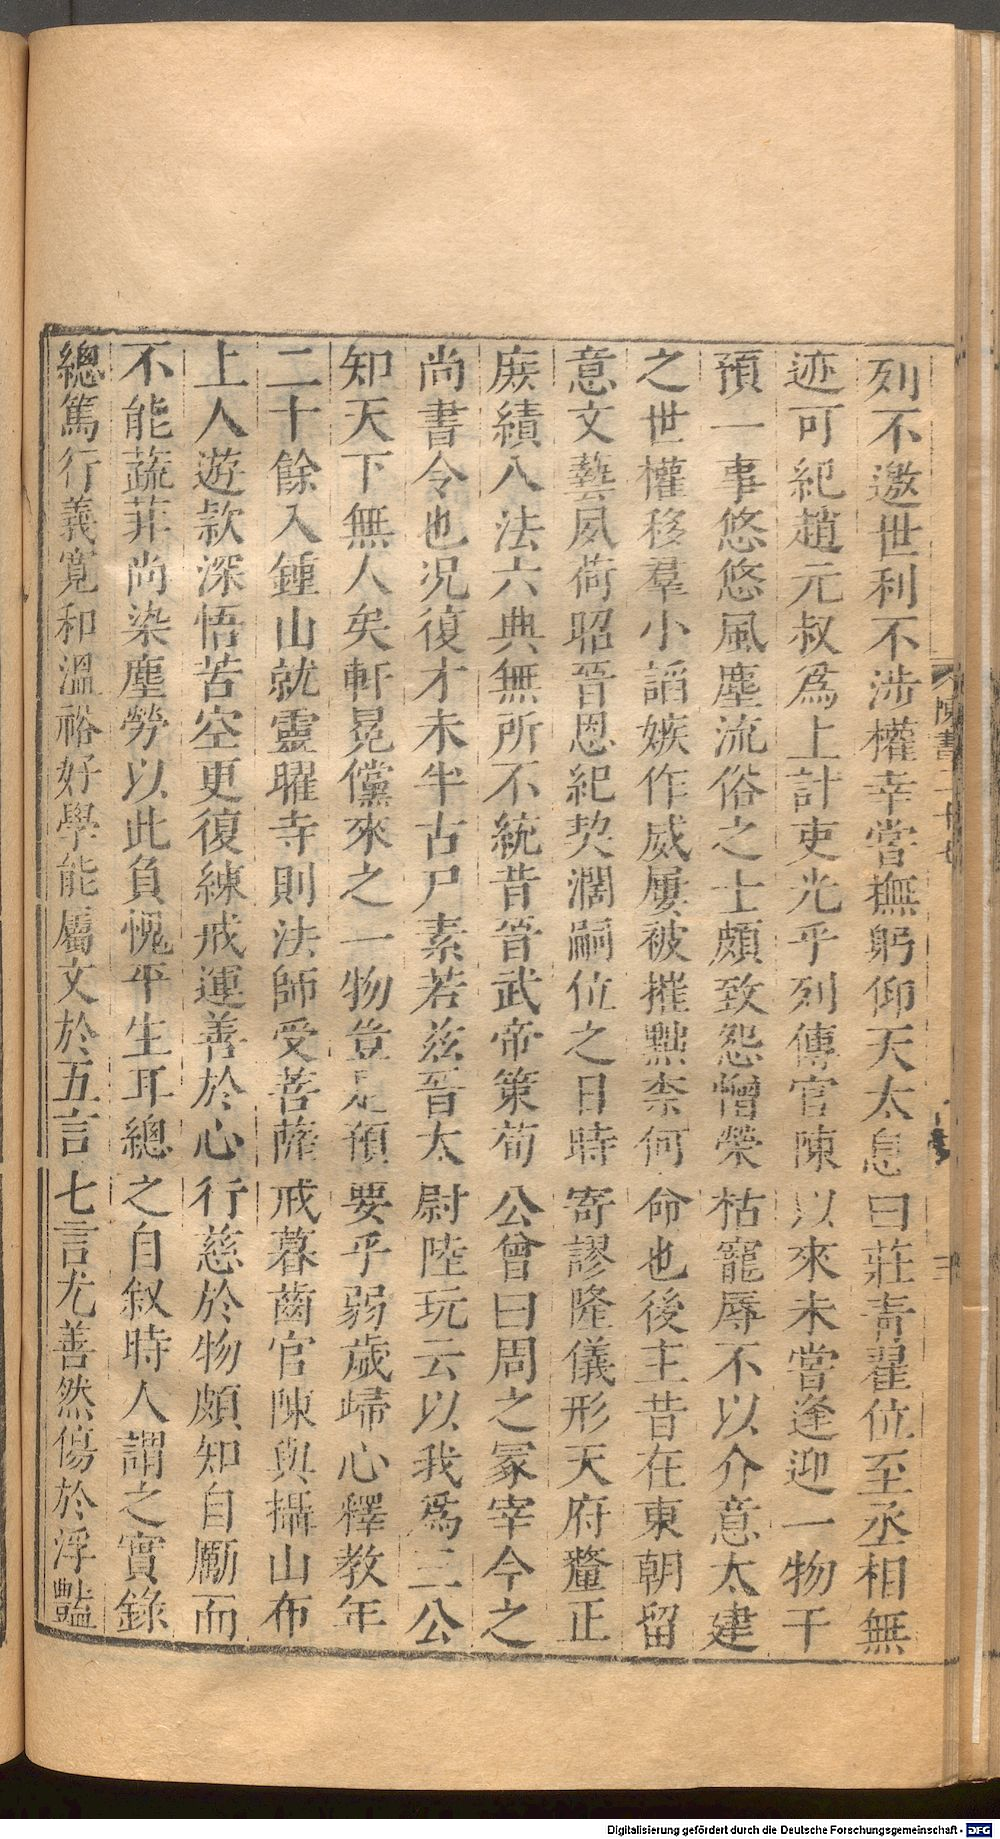 陳書二十七
列不邀世利不涉權幸嘗撫躬仰天太息曰莊青翟位至丞相無
迹可紀趙元叔爲上計吏光乎列傳官陳以來未嘗逢迎一物干
預一事悠悠風塵流俗之士頗致怨憎榮枯寵辱不以介意太建
之世權移羣小諂嫉作威屢被摧黜柰何命也後主昔在東朝留
意文藝夙荷昭晉恩紀契濶嗣位之日時寄謬隆儀形天府釐正
庶績八法六典無所不統昔晉武帝策荀公曾曰周之冢宰今之
尚書令也况復才未半古尸素若茲晉太尉陸玩云以我爲三公
知天下無人矣軒冕儻來之一物豈足預要乎弱歲歸心釋教年
二十餘入鍾山就靈曜寺則法師受菩薩戒暮齒官陳與攝山布
上人遊款深悟苦空更復練戒運善於心行慈於物頗知自勵而
不能蔬菲尚染塵勞以此負愧平生耳總之自叙時人謂之實錄
總篤行義寬和溫裕好學能屬文於五言七言尤善然傷於浮豔
Digitalisierung gefördert durch die Deutsche Forschungsgemeinschaft - DFG